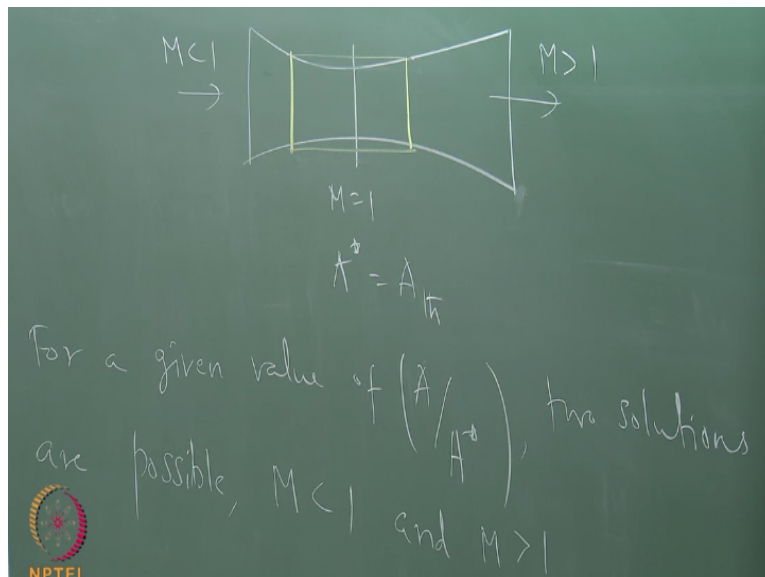 M<1
M>1
M=1
A* = A_th
For a given value of (A/A*), two solutions
are possible, M<1 and M>1
NPTEL